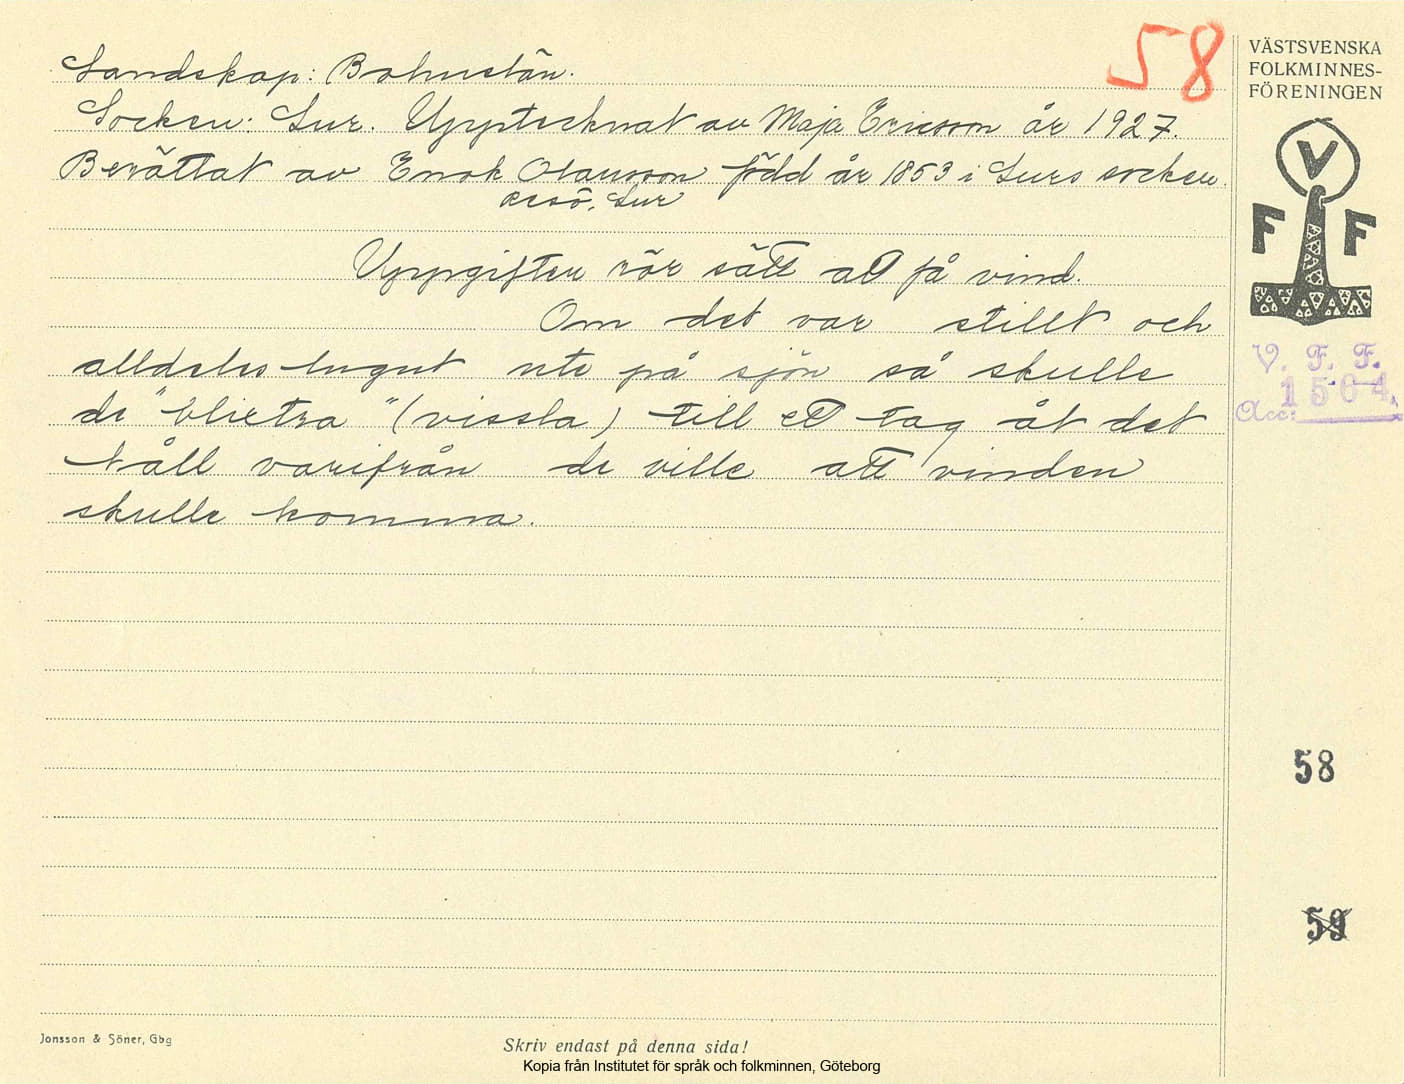 58
Landskap: Bohuslän.
Socken: Lur. Upptecknat av Maja Ericsson år 1927.
Berättat av Enok Olausson född år 1853 i Lurs socken.
Resö, Lur
Uppgifter rör sätt att få vind.
Om det var stillt och
alldeles lugnt ute på sjön så skulle
de "blistra" (vissla) till ett tag åt det
håll varifrån de ville att vinden
skulle komma.
VÄSTSVENSKA
FOLKMINNES-
FÖRENINGEN
V
F F
V. F. F.
1564
Acc:
58
59
Jonsson & Söner, Gbg
Skriv endast på denna sida!
Kopia från Institutet för språk och folkminnen, Göteborg